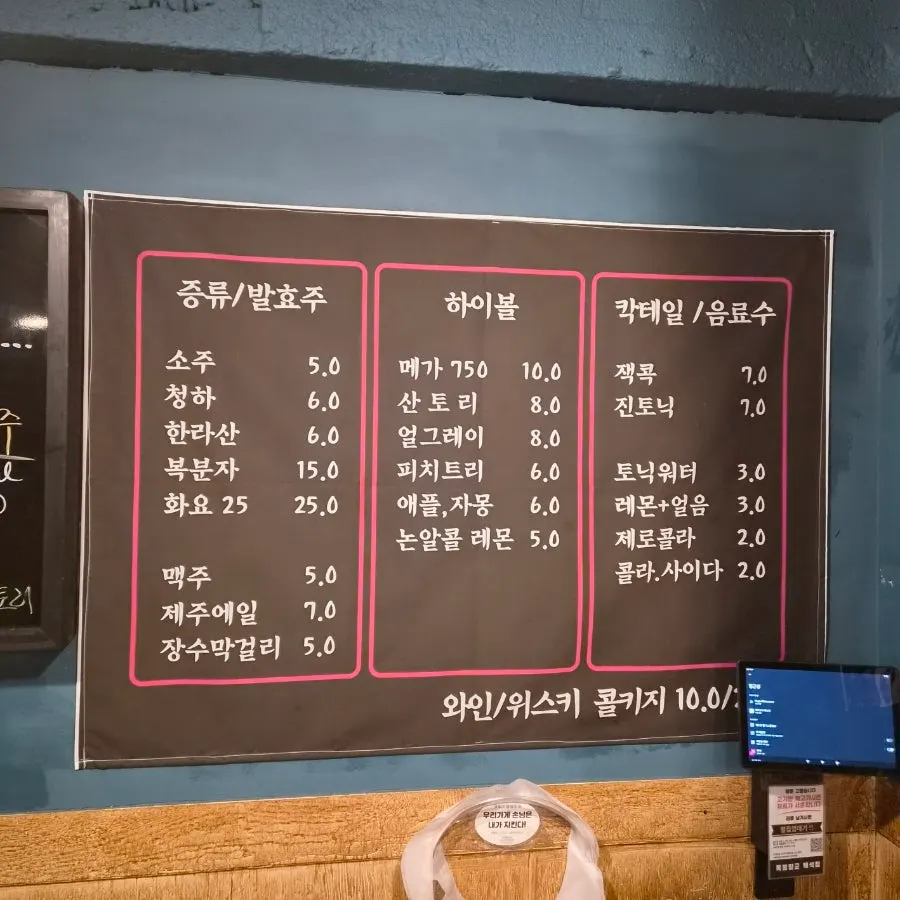 증류/발효주
소주 5.0
청하 6.0
한라산 6.0
복분자 15.0
화요 25 25.0
맥주 5.0
제주에일 7.0
장수막걸리 5.0
하이볼
메가 750 10.0
산토리 8.0
얼그레이 8.0
피치트리 6.0
애플,자몽 6.0
논알콜 레몬 5.0
칵테일 /음료수
잭콕 7.0
진토닉 7.0
토닉워터 3.0
레몬+얼음 3.0
제로콜라 2.0
콜라.사이다 2.0
와인/위스키 콜키지 10.0/
주
우리가게 손님은
내가 지킨다!